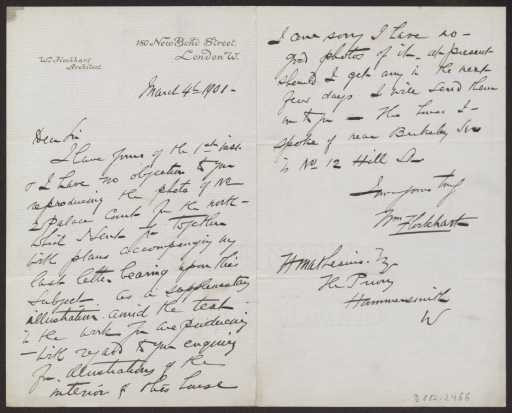 180 New Bond Street.
London W.
Wm Flockhart
Architect
March 4th 1901 -
Dear Sir
I have yours of the 1st inst.
& I have no objection to your
reproducing the photo of No
2 Palace Court for the work
which I sent you together
with plans accompanying my
last letter bearing upon this
subject as a supplementary
illustration amid the text
in the work you are producing
- With regard to your enquiry
for illustrations of the
interior of this house
I am sorry I have no
good photos of it at present
should I get any in the next
few days I will send them
on to you - The house I
spoke of near Berkeley Sq
is No 12 Hill St
I am yours truly
Wm Flockhart
H Mathews. Esq
The Priory
Hammersmith
W